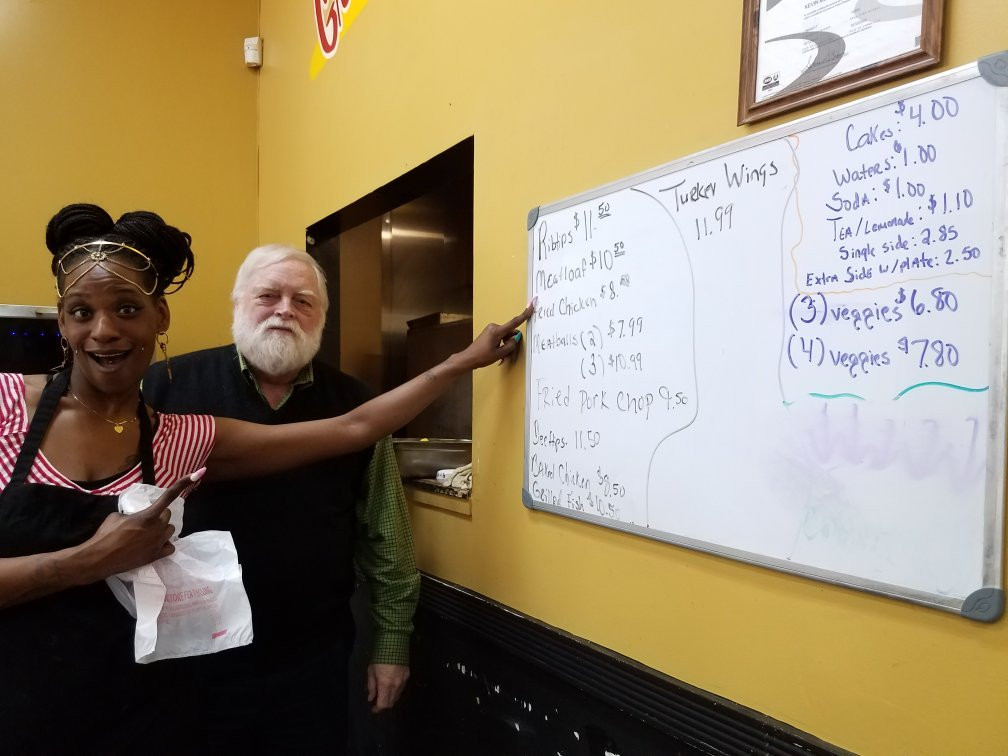 KEVIN
Ribtips $11.50
Meatloaf $10.50
Fried Chicken $8.50
Meatballs (2) $7.99
(3) $10.99
Fried Pork Chop 9.50
Beeftips 11.50
Baked Chicken $8.50
Grilled Fish $10.50
Turkey Wings
11.99
Cakes: $4.00
Waters: $1.00
Soda: $1.00
Tea/Lemonade: $1.10
Single side: 2.85
Extra Side w/plate: 2.50
(3) veggies $6.80
(4) veggies $7.80